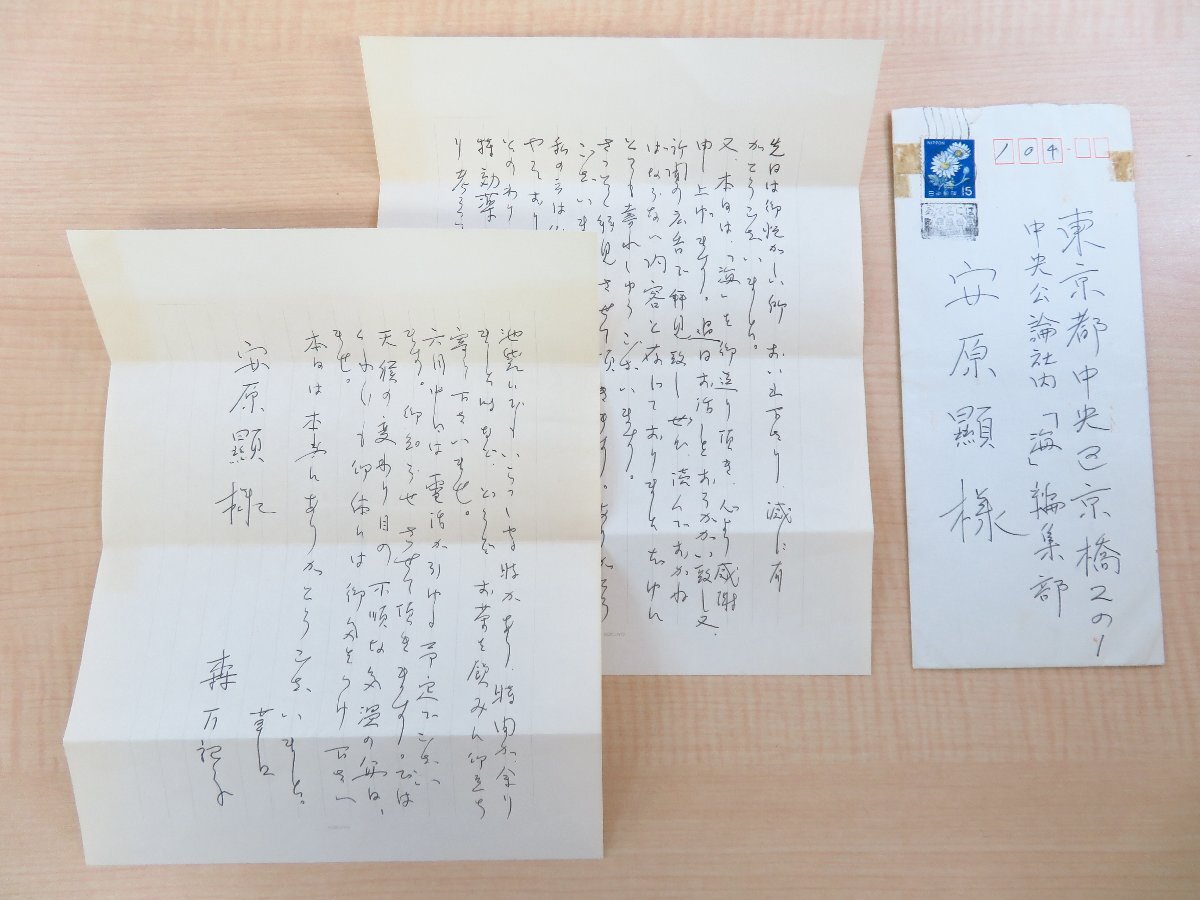 先日は御忙がしい所 おいで下さり、誠に有
がとうございました。
又、本日は、「海」を御送り頂き、心より感謝
申し上げます。過日お話しをうかがい致し、又、
新聞の広告で拝見致し ぜひ、読んでおかね
ばならない内容と存じておりました
とても嬉れしゅうございます。
さっそく拝見させて頂きます。ありがとう
ございま
私の
やはり
そのわり
特効薬
り考えて
池袋にでもいらっしゃる時があり、時間が余り
ましたなら、どうぞ お茶を飲みに御立ち
寄り下さいませ。
六月中には電話が引ける予定でござい
ます。御知らせさせて頂きます。では
天候の変わり目の不順な気温の毎日、
くれぐれも御体には御気をつけ下さい
ませ。
本日は本当にありがとうございました。
草々
森万紀子
安原顯様
NIPPON
日本郵便
15
104
東京都中央区京橋2の1
中央公論社内「海」編集部
安原顯様